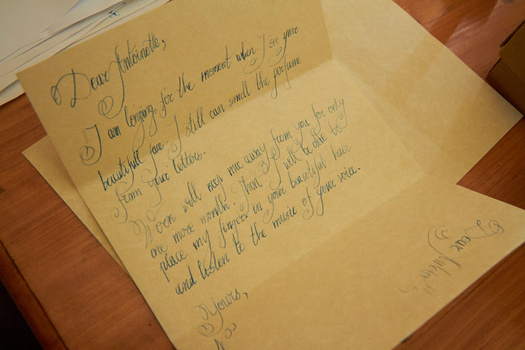 Dear Antoinette,
I am longing for the moment when I see your
beautifull face. I still can smell the perfume
from your letters.
Work will keep me away from you for only
one more month. Than I will be able to
place my fingers in your beautiful hair
and listen to the music of your voice.
Yours,
Dear